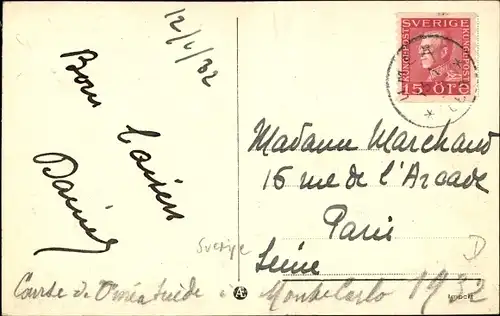 12/1/32
Bons baisers
Daniel
SVERIGE
KUNGL. POST
KUNGL. POST
15 ÖRE
Madame Marchand
15 rue de l'Arcade
Paris
Seine
Sverige
Course de Suède à Monte Carlo 1932